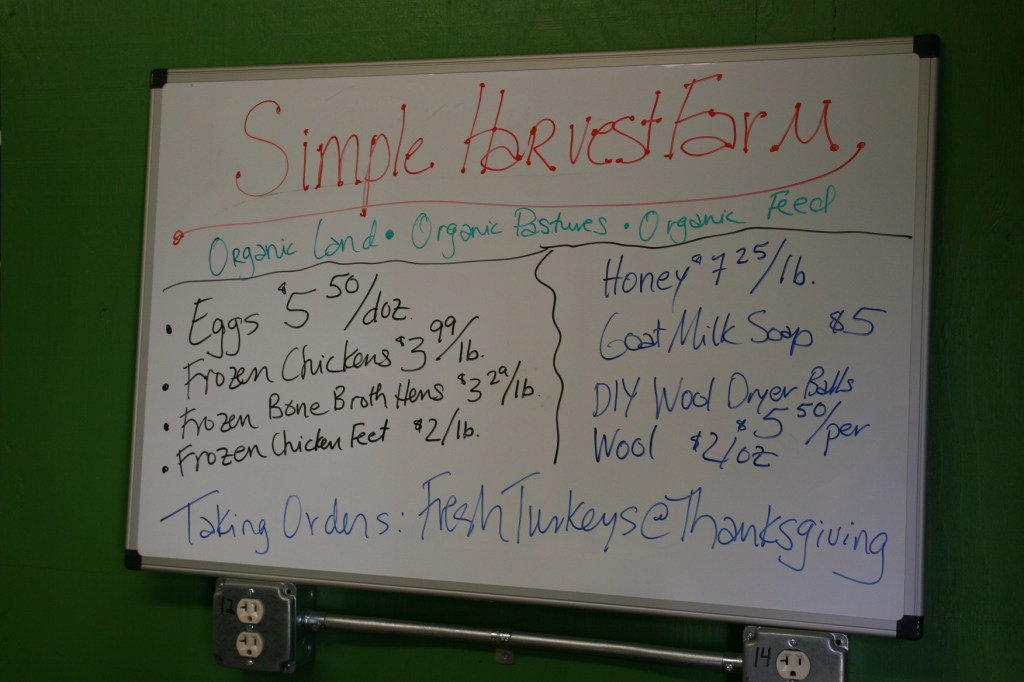 Simple Harvest Farm
Organic Land • Organic Pastures • Organic Feed
• Eggs $5 50/doz.
• Frozen Chickens $3 99/lb.
• Frozen Bone Broth Hens $3 29/lb.
• Frozen Chicken Feet $2/lb.
Honey $7 25/lb.
Goat Milk Soap $5
DIY Wool Dryer Balls
$5 50/per
Wool $2/oz
Taking Orders: Fresh Turkeys @ Thanksgiving
12
14